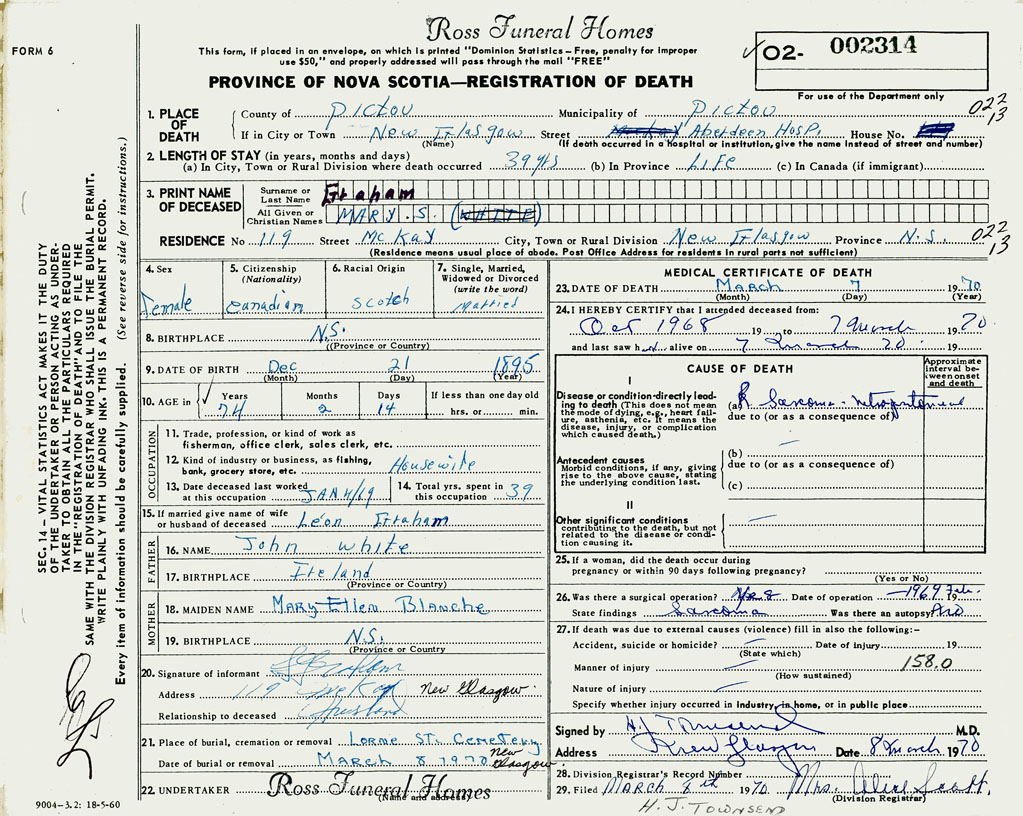 Ross Funeral Homes
FORM 6
This form, if placed in an envelope, on which is printed "Dominion Statistics – Free, penalty for improper
use $50," and properly addressed will pass through the mail "FREE"
PROVINCE OF NOVA SCOTIA—REGISTRATION OF DEATH
✓ O2- 002314
For use of the Department only
022
13
1. PLACE OF DEATH
County of Pictou Municipality of Pictou
If in City or Town New Glasgow Street Aberdeen Hosp. House No.
(Name) (If death occurred in a hospital or institution, give the name instead of street and number)
2. LENGTH OF STAY (in years, months and days)
(a) In City, Town or Rural Division where death occurred 39 yrs (b) In Province Life (c) In Canada (if immigrant)
3. PRINT NAME OF DECEASED
Surname or Last Name Graham
All Given or Christian Names MARY. S. (WHITE)
RESIDENCE No 119 Street McKay City, Town or Rural Division New Glasgow Province N.S.
022
13
(Residence means usual place of abode. Post Office Address for residents in rural parts not sufficient)
4. Sex Female
5. Citizenship (Nationality) Canadian
6. Racial Origin Scotch
7. Single, Married, Widowed or Divorced (write the word) Married
8. BIRTHPLACE N.S.
(Province or Country)
9. DATE OF BIRTH Dec 21 1895
(Month) (Day) (Year)
10. AGE in ✓ Years Months Days If less than one day old
74 2 14 hrs. or min.
OCCUPATION
11. Trade, profession, or kind of work as
fisherman, office clerk, sales clerk, etc.
12. Kind of industry or business, as fishing,
bank, grocery store, etc. Housewife
13. Date deceased last worked
at this occupation JAN 4/69
14. Total yrs. spent in
this occupation 39
15. If married give name of wife
or husband of deceased Leon Graham
FATHER
16. NAME John White
17. BIRTHPLACE Ireland
(Province or Country)
MOTHER
18. MAIDEN NAME Mary Ellen Blanche
19. BIRTHPLACE N.S.
(Province or Country)
20. Signature of informant Graham
Address 119 McKay New Glasgow.
Relationship to deceased Husband
21. Place of burial, cremation or removal Lorne St. Cemetery
Date of burial or removal March 8 1970 New Glasgow
22. UNDERTAKER Ross Funeral Homes
(Name and address)
MEDICAL CERTIFICATE OF DEATH
23. DATE OF DEATH March 7 1970
(Month) (Day) (Year)
24. I HEREBY CERTIFY that I attended deceased from:
Oct 1968 19 to 7 March 1970
and last saw h alive on 7 March 70 19
CAUSE OF DEATH
Approximate interval between onset and death
I
Disease or condition directly leading
to death (This does not mean
the mode of dying, e.g., heart failure,
asthenia, etc. It means the
disease, injury, or complication
which caused death.)
(a) Sarcoma - retroperitoneal
due to (or as a consequence of)
Antecedent causes
Morbid conditions, if any, giving
rise to the above cause, stating
the underlying condition last.
(b)
due to (or as a consequence of)
(c)
II
Other significant conditions
contributing to the death, but not
related to the disease or condition
causing it.
25. If a woman, did the death occur during
pregnancy or within 90 days following pregnancy?
(Yes or No)
26. Was there a surgical operation? Yes Date of operation 1969 Feb. 19
State findings Sarcoma Was there an autopsy? No
27. If death was due to external causes (violence) fill in also the following:–
Accident, suicide or homicide? Date of injury 19
(State which)
158.0
Manner of injury
(How sustained)
Nature of injury
Specify whether injury occurred in industry, in home, or in public place
Signed by H J Townsend M.D.
Address New Glasgow Date 8 March 1970
28. Division Registrar's Record Number
29. Filed March 8th 1970 Mrs. Alice Scott.
(Division Registrar)
H. J. TOWNSEND
SEC. 14 – VITAL STATISTICS ACT MAKES IT THE DUTY
OF THE UNDERTAKER OR PERSON ACTING AS UNDERTAKER
TO OBTAIN ALL THE PARTICULARS REQUIRED
IN THE "REGISTRATION OF DEATH" AND TO FILE THE
SAME WITH THE DIVISION REGISTRAR WHO SHALL ISSUE THE BURIAL PERMIT.
WRITE PLAINLY WITH UNFADING INK. THIS IS A PERMANENT RECORD.
Every item of information should be carefully supplied. (See reverse side for instructions.)
9004–3.2: 18-5-60